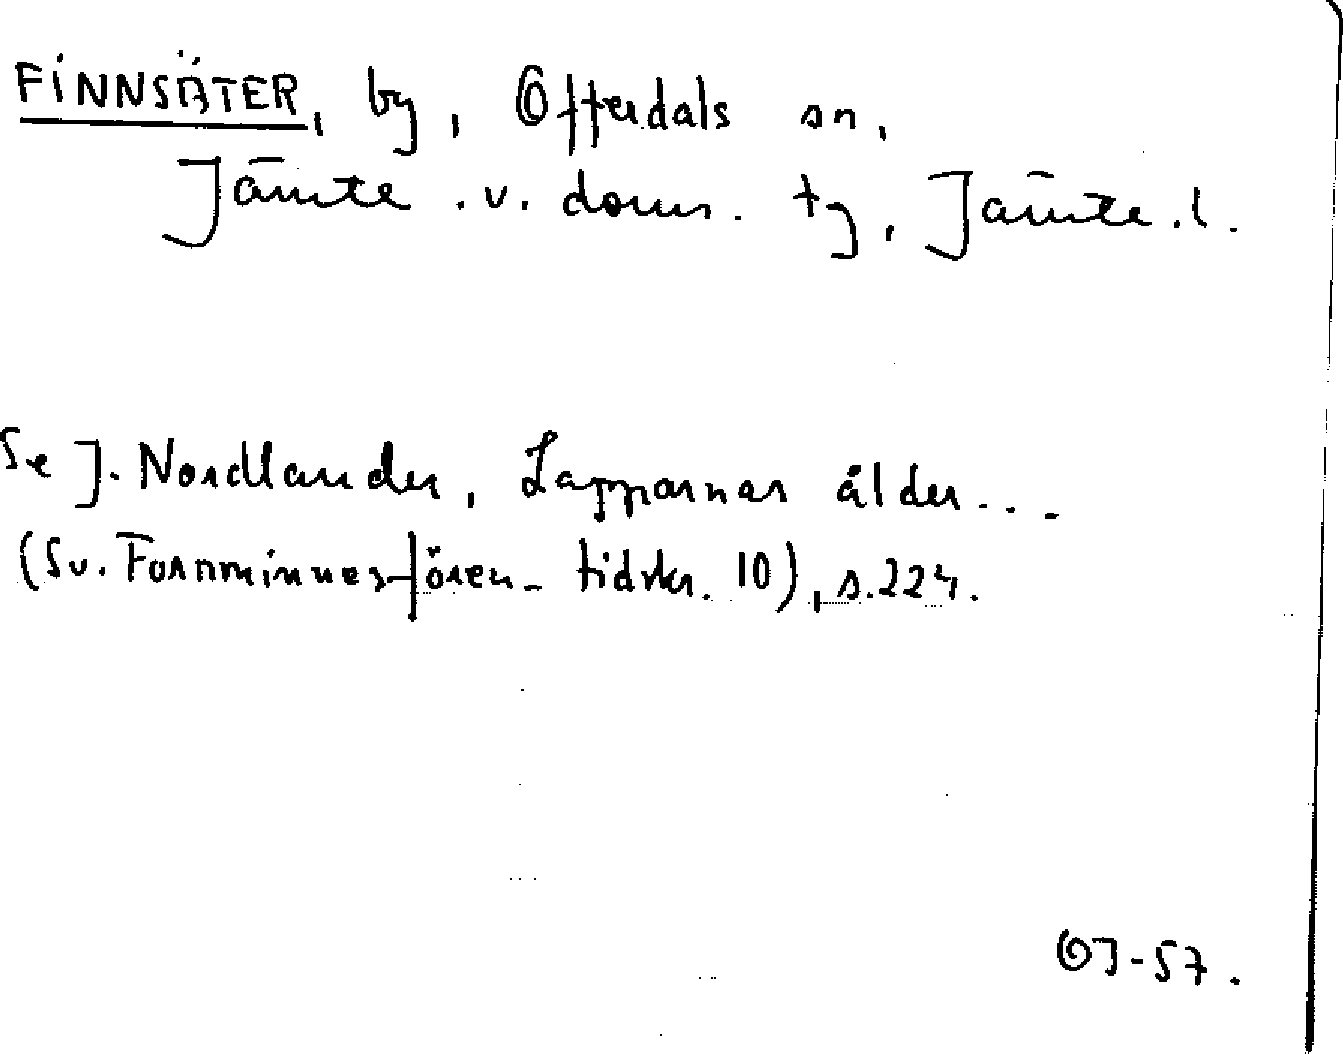 FINNSÄTER, by, Offerdals sn,
Jämte. v. doms. tg, Jämte. l.
Se J. Nordlander, Lapparnas ålder...
(Sv. Fornminnesfören. tidskr. 10), s. 224.
OJ-57.